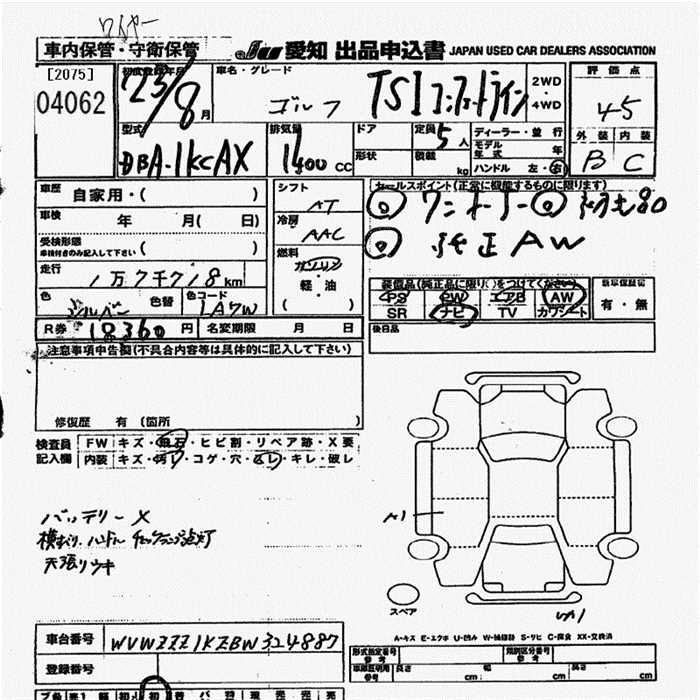 車内保管・守衛保管
愛知 出品申込書 JAPAN USED CAR DEALERS ASSOCIATION
[2075]
04062
初度登録年月
23/8月
車名・グレード
ゴルフ TSIコンフォートライン
2WD
・
4WD
評価点
45
外装 内装
B C
型式
DBA-1KCAX
排気量
1400 CC
ドア
形状
定員 5 人
積載 kg
ディーラー・並行
モデル年式 年
ハンドル 左・右
車歴 自家用・( )
車検 年 月( 日)
受検形態
車検付きのみ記入して下さい ( )
走行
1万7千718km
色 シルバー 色替 色コード LA7W
R券 18360 円 名変期限 月 日
シフト
AT
冷房
AAC
燃料
ガソリン
・軽・油
( )
セールスポイント(正常に機能するものに限ります)
ワンオーナー
純正AW
装備品(純正品に限り、○をつけてください)
PS PW エアB AW
SR ナビ TV カワシート
新車保証書
有・無
後日品
注意事項申告欄(不具合内容等は具体的に記入して下さい)
修復歴 有 (箇所 )
検査員
記入欄
FW キズ・飛石・ヒビ割・リペア跡・X要
内装 キズ・汚レ・コゲ・穴・スレ・キレ・破レ
バッテリーX
ハンドル チェックランプ点灯
天張りウキ
A1
スペア
A-キズ E-エクボ U-凹ミ W-補修跡 S-サビ C-腐食 XX-交換済
車台番号 WVWZZZ1KZBW324887
登録番号
形式指定番号 参考
類別区分番号 参考
車庫証明用 参考 長さ cm 幅 cm 高さ cm